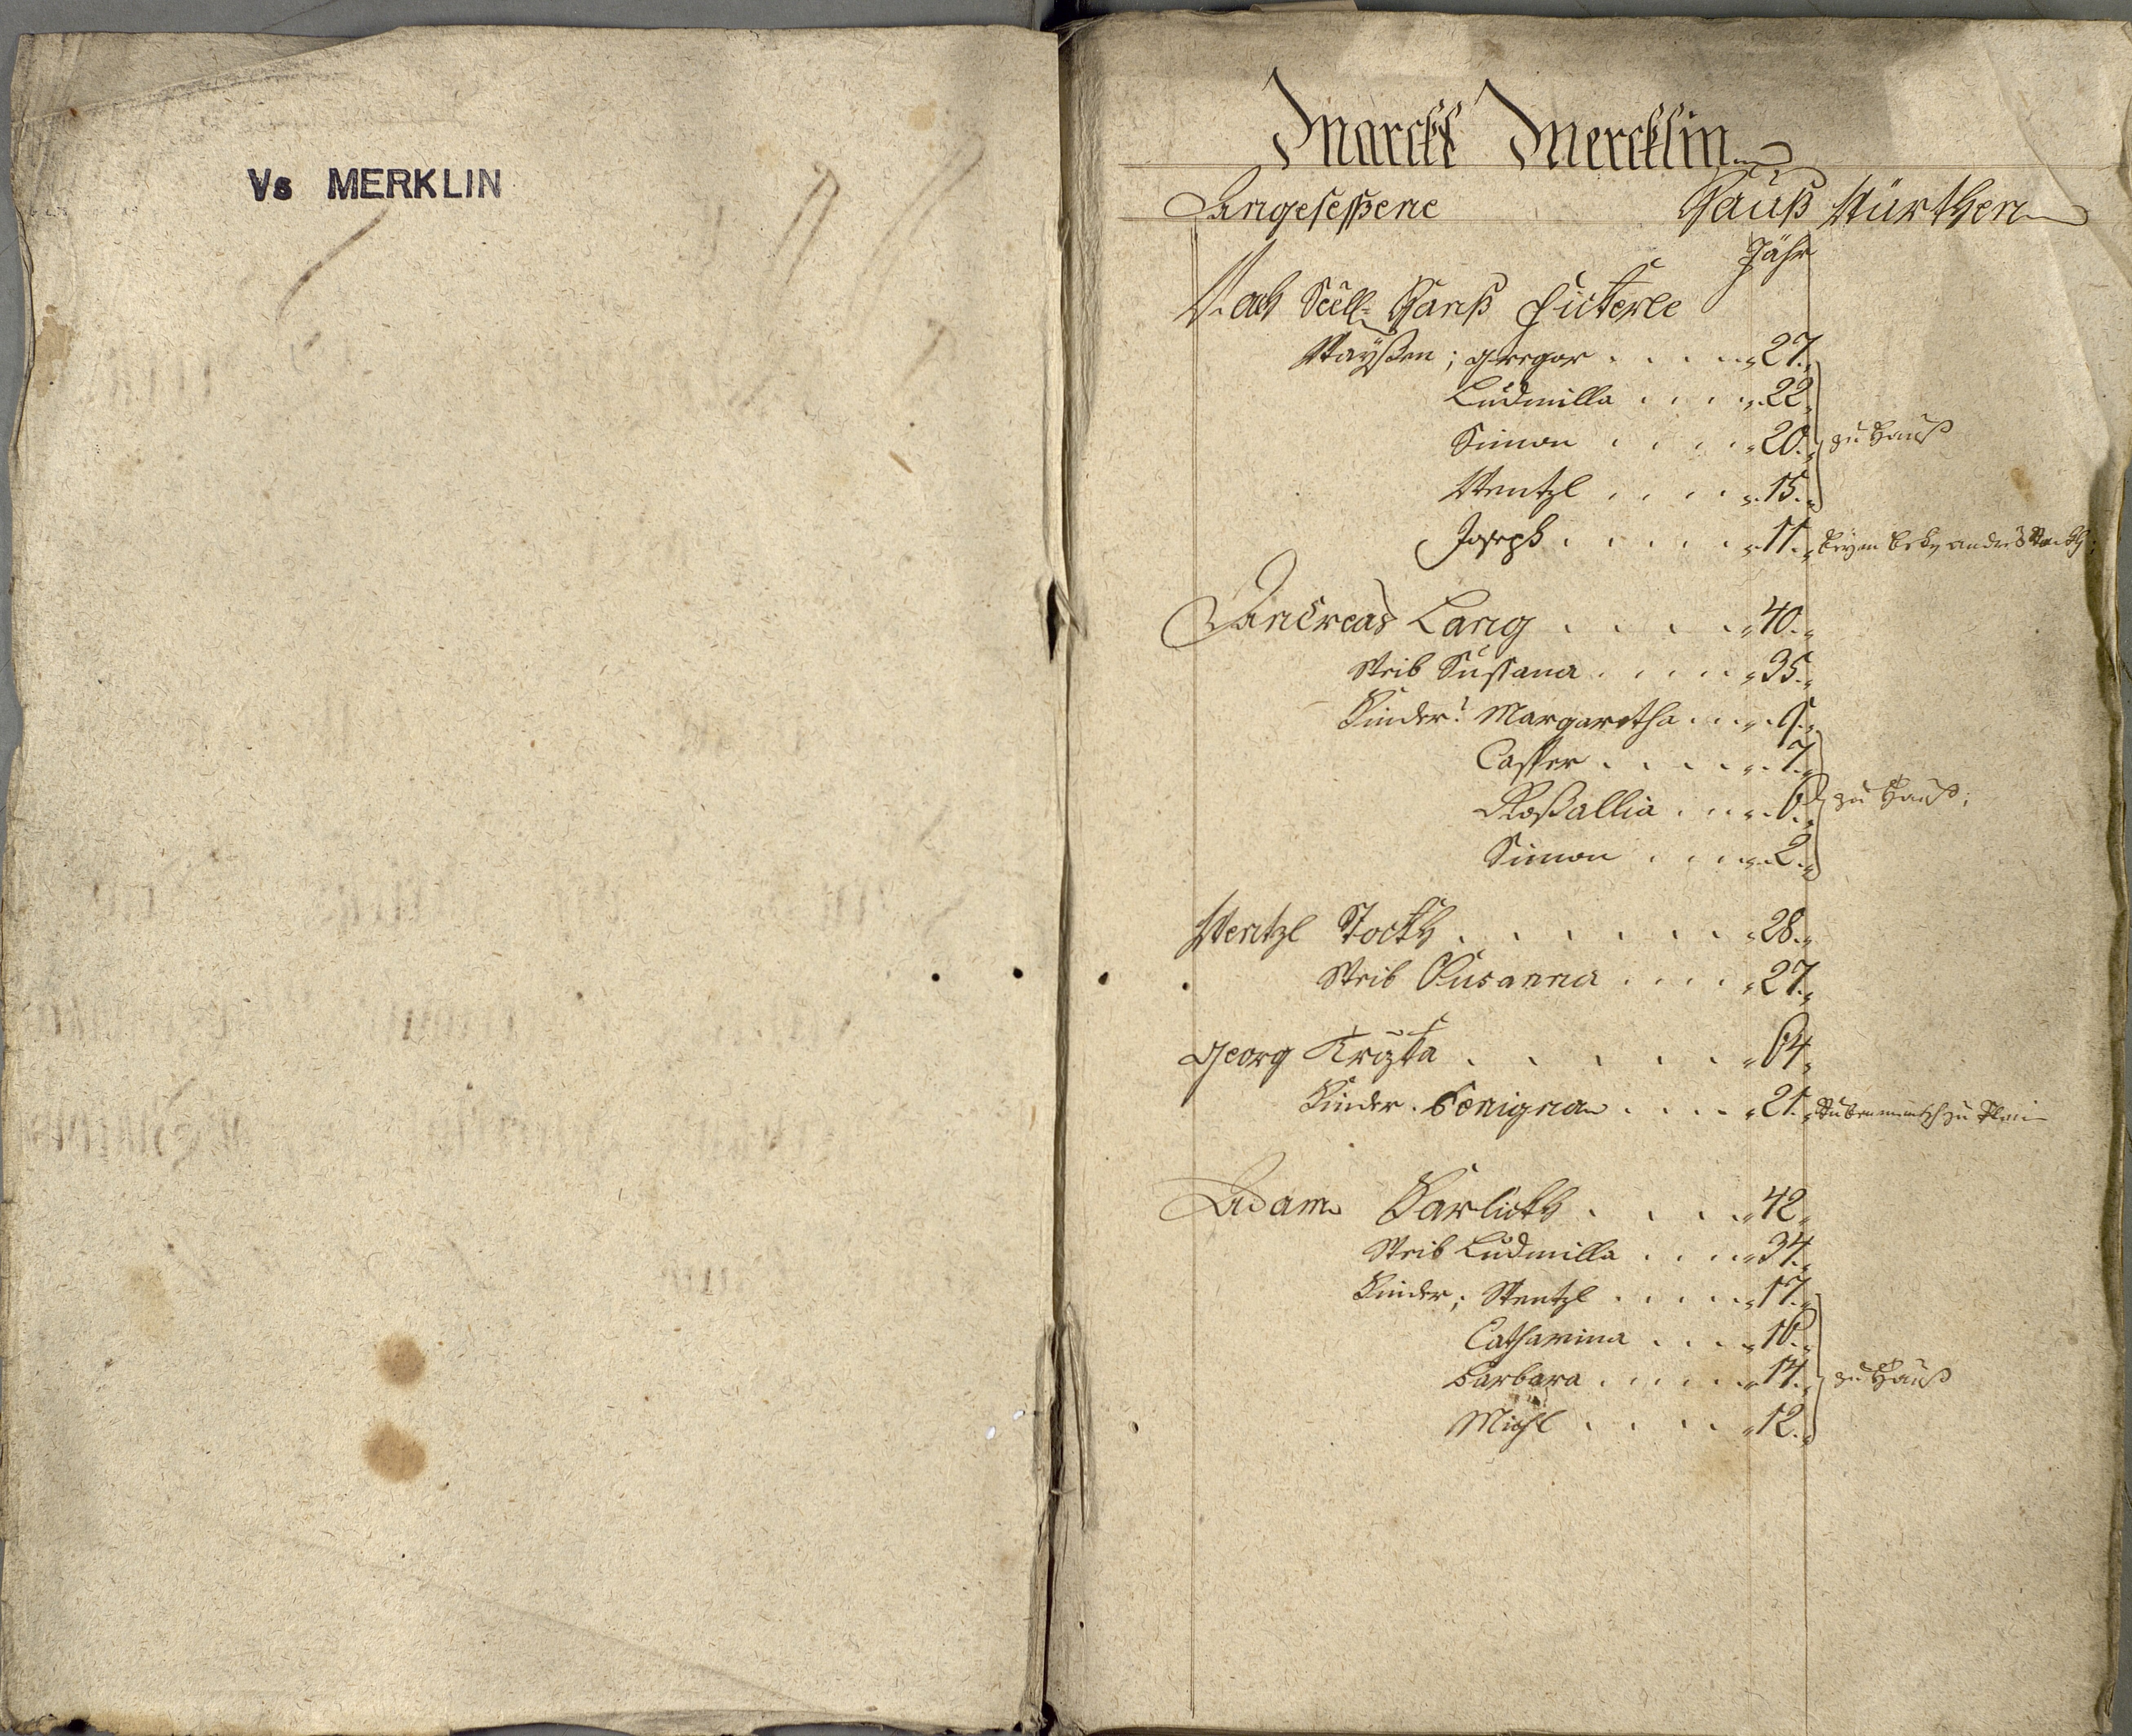 Vs MERKLIN
Marckt Mercklin
Angeseßene Hauß Würthen
Jahr
Nach Seel: Hanß Fieterle
Wayßen; Gregor . . . . 27.
Ludmilla . . . . 22.
Simon . . . . 20. zu Hauß
Wentzl . . . . 15.
Joseph . . . . . 11.
Andreas Lang . . . . 40.
Weib Sussana . . . . 35.
Kinder: Margaretha . . . 9.
Casper . . . . 7.
Roßallia . . . 6. zu Hauß;
Simon . . . . 2.
Wentzl Tockh . . . . . . 28.
Weib Susanna . . . . 27.
Georg Krzista . . . . . 64.
Kinder. Benigna . . . . 21.
Adam Karlickh . . . . 42.
Weib Ludmilla . . . . 34.
Kinder; Wentzl . . . . . 17.
Catharina . . . . 16.
Barbara . . . . . 14. zu Hauß
Michl . . . . 12.